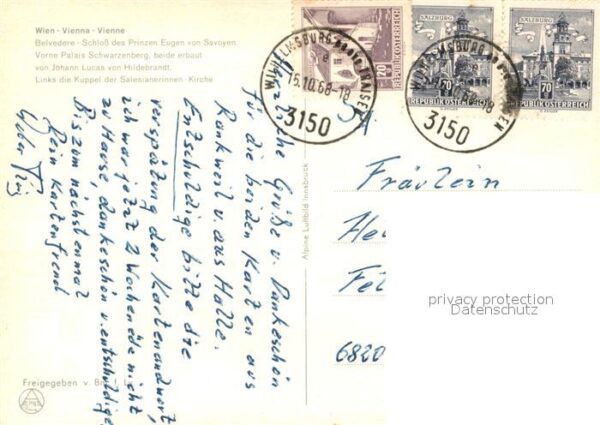 Wien · Vienna · Vienne
Belvedere · Schloß des Prinzen Eugen von Savoyen.
Vorne Palais Schwarzenberg, beide erbaut
von Johann Lucas von Hildebrandt.
Links die Kuppel der Salesianerinnen · Kirche
WILHELMSBURG an der TRAISEN
e
15.10.68-18
3150
1.20
REPUBLIK ÖSTERREICH
WILHELMSBURG an der TRAISEN
e
15.10.68-18
3150
SALZBURG
70
REPUBLIK ÖSTERREICH
SALZBURG
70
REPUBLIK ÖSTERREICH
Herzliche Grüße u. Dankeschön
für die beiden Karten aus
Rankweil u. aus Halle.
Entschuldige bitte die
verspätung der Kartenandwort,
ich war jetzt 2 Wochen nicht
zu Hause, dankeschön u. entschuldige
Bis zum nächstenmal
Dein Kartenfreund
Alpine Luftbild Innsbruck
Fräulein
He
Fel
6820
privacy protection
Datenschutz
Freigegeben v